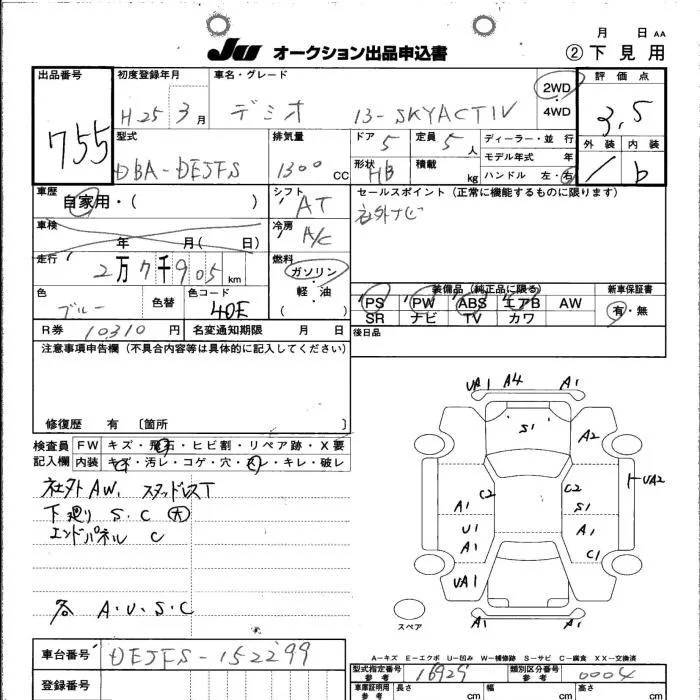 月 日 AA
JU オークション出品申込書
②下見用
出品番号
755
初度登録年月
H25 3月
車名・グレード
デミオ 13-SKYACTIV
2WD
4WD
評価点
3.5
外装 内装
1 b
型式
DBA-DEJFS
排気量
1300 CC
ドア
5
定員
5人
ディーラー・並 行
モデル年式 年
形状
HB
積載
kg
ハンドル 左・右
車歴
自家用・( )
シフト
AT
セールスポイント(正常に機能するものに限ります)
社外ナビ
車検
年 月( 日)
冷房
A/C
走行
2万7千905km
燃料
ガソリン
軽・油
( )
色
ブルー
色替
色コード
40E
装備品(純正品に限る)
PS PW ABS エアB AW
SR ナビ TV カワ
新車保証書
有・無
R券 10310円
名変通知期限 月 日
後日品
注意事項申告欄(不具合内容等は具体的に記入してください)
修復歴 有 〔箇所 〕
検査員
記入欄
FW キズ・飛石・ヒビ割・リペア跡・X要
内装 キズ・汚レ・コゲ・穴・スレ・キレ・破レ
社外AW、スタッドレスT
下廻り S・C 大
エンドパネル C
各 A・U・S・C
UA1 A4 A1
S1
A2
UA2
C2 C2
A1 S1
U1 A1
A1 C1
UA1
A1 A1
スペア
A-キズ E-エクボ U-凹み W-補修跡 S-サビ C-腐食 XX-交換済
車台番号
DEJFS-152299
登録番号
型式指定番号
参考
16929
類別区分番号
参考
0004
車庫証明用
参考
長さ cm
幅 cm
高さ cm